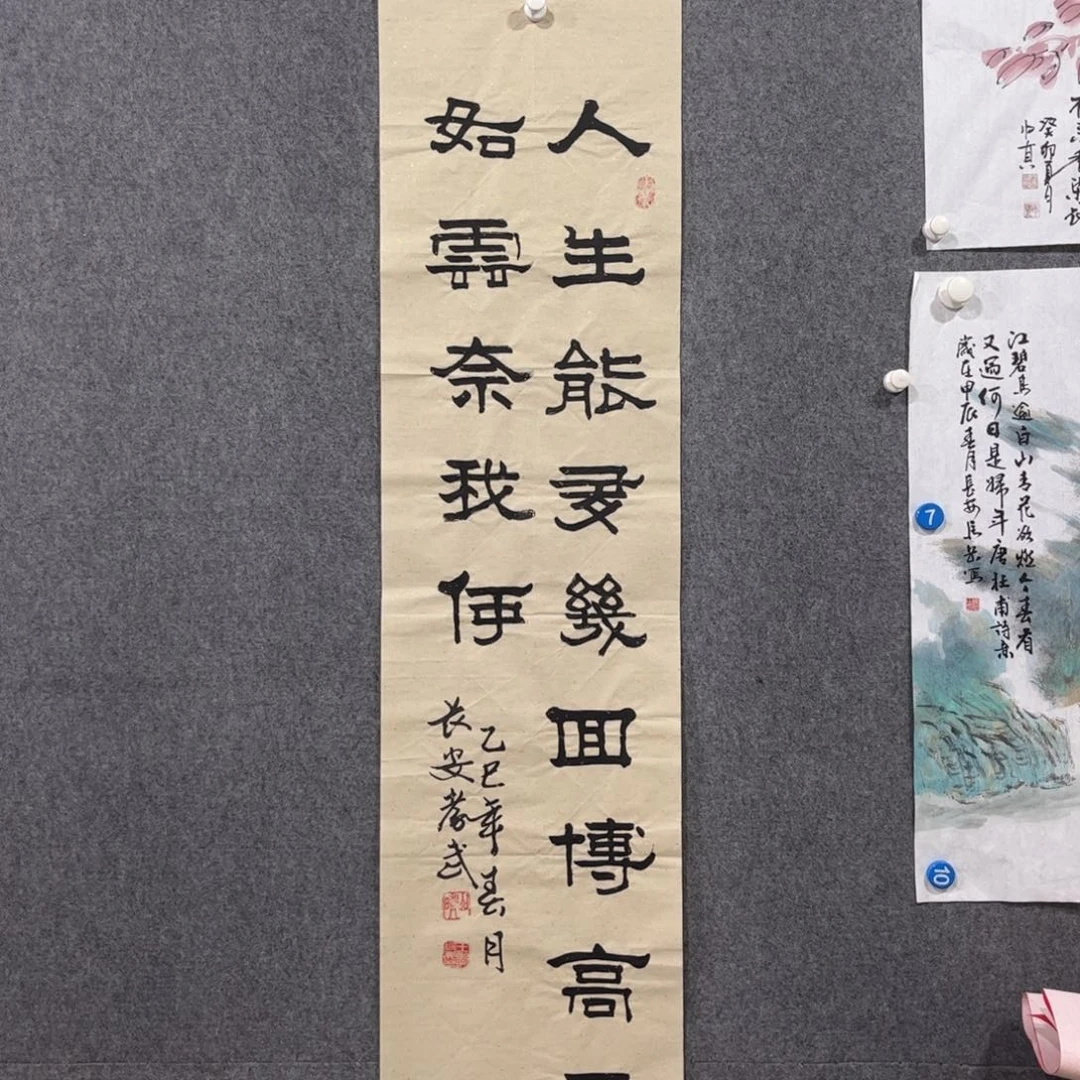 人生能幾回博高
如雲奈我何
乙巳年春月
长安孝武
癸卯夏月
江碧鳥逾白山青花欲燃今春看
又過何日是歸年唐杜甫詩意
歲在甲辰春月長安馬
7
10